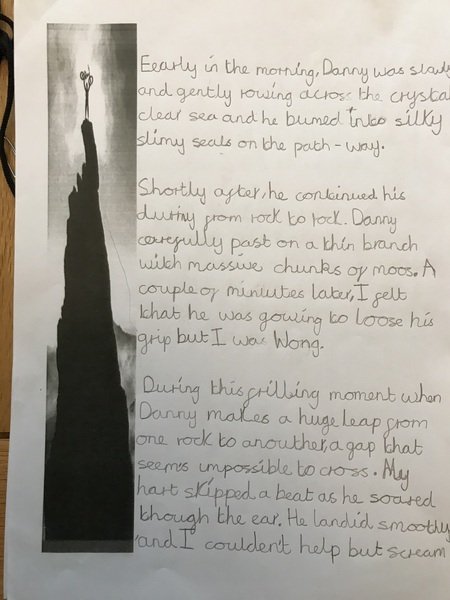 Eearly in the morning, Danny was slowly
and gently rowing across the crystal
clear sea and he bumed into silky
slimy seals on the path-way.
Shortly after, he contined his
duriny from rock to rock. Danny
carefully past on a thin branch
with massive chunks of moos. A
couple of miniutes later, I felt
that he was gowing to loose his
grip but I was Wong.
During this grilling moment when
Danny makes a huge leap from
one rock to anouther, a gap that
seems impossible to cross. My
hart skipped a beat as he soared
though the ear. He landid smoothly
and I coulden't help but scream